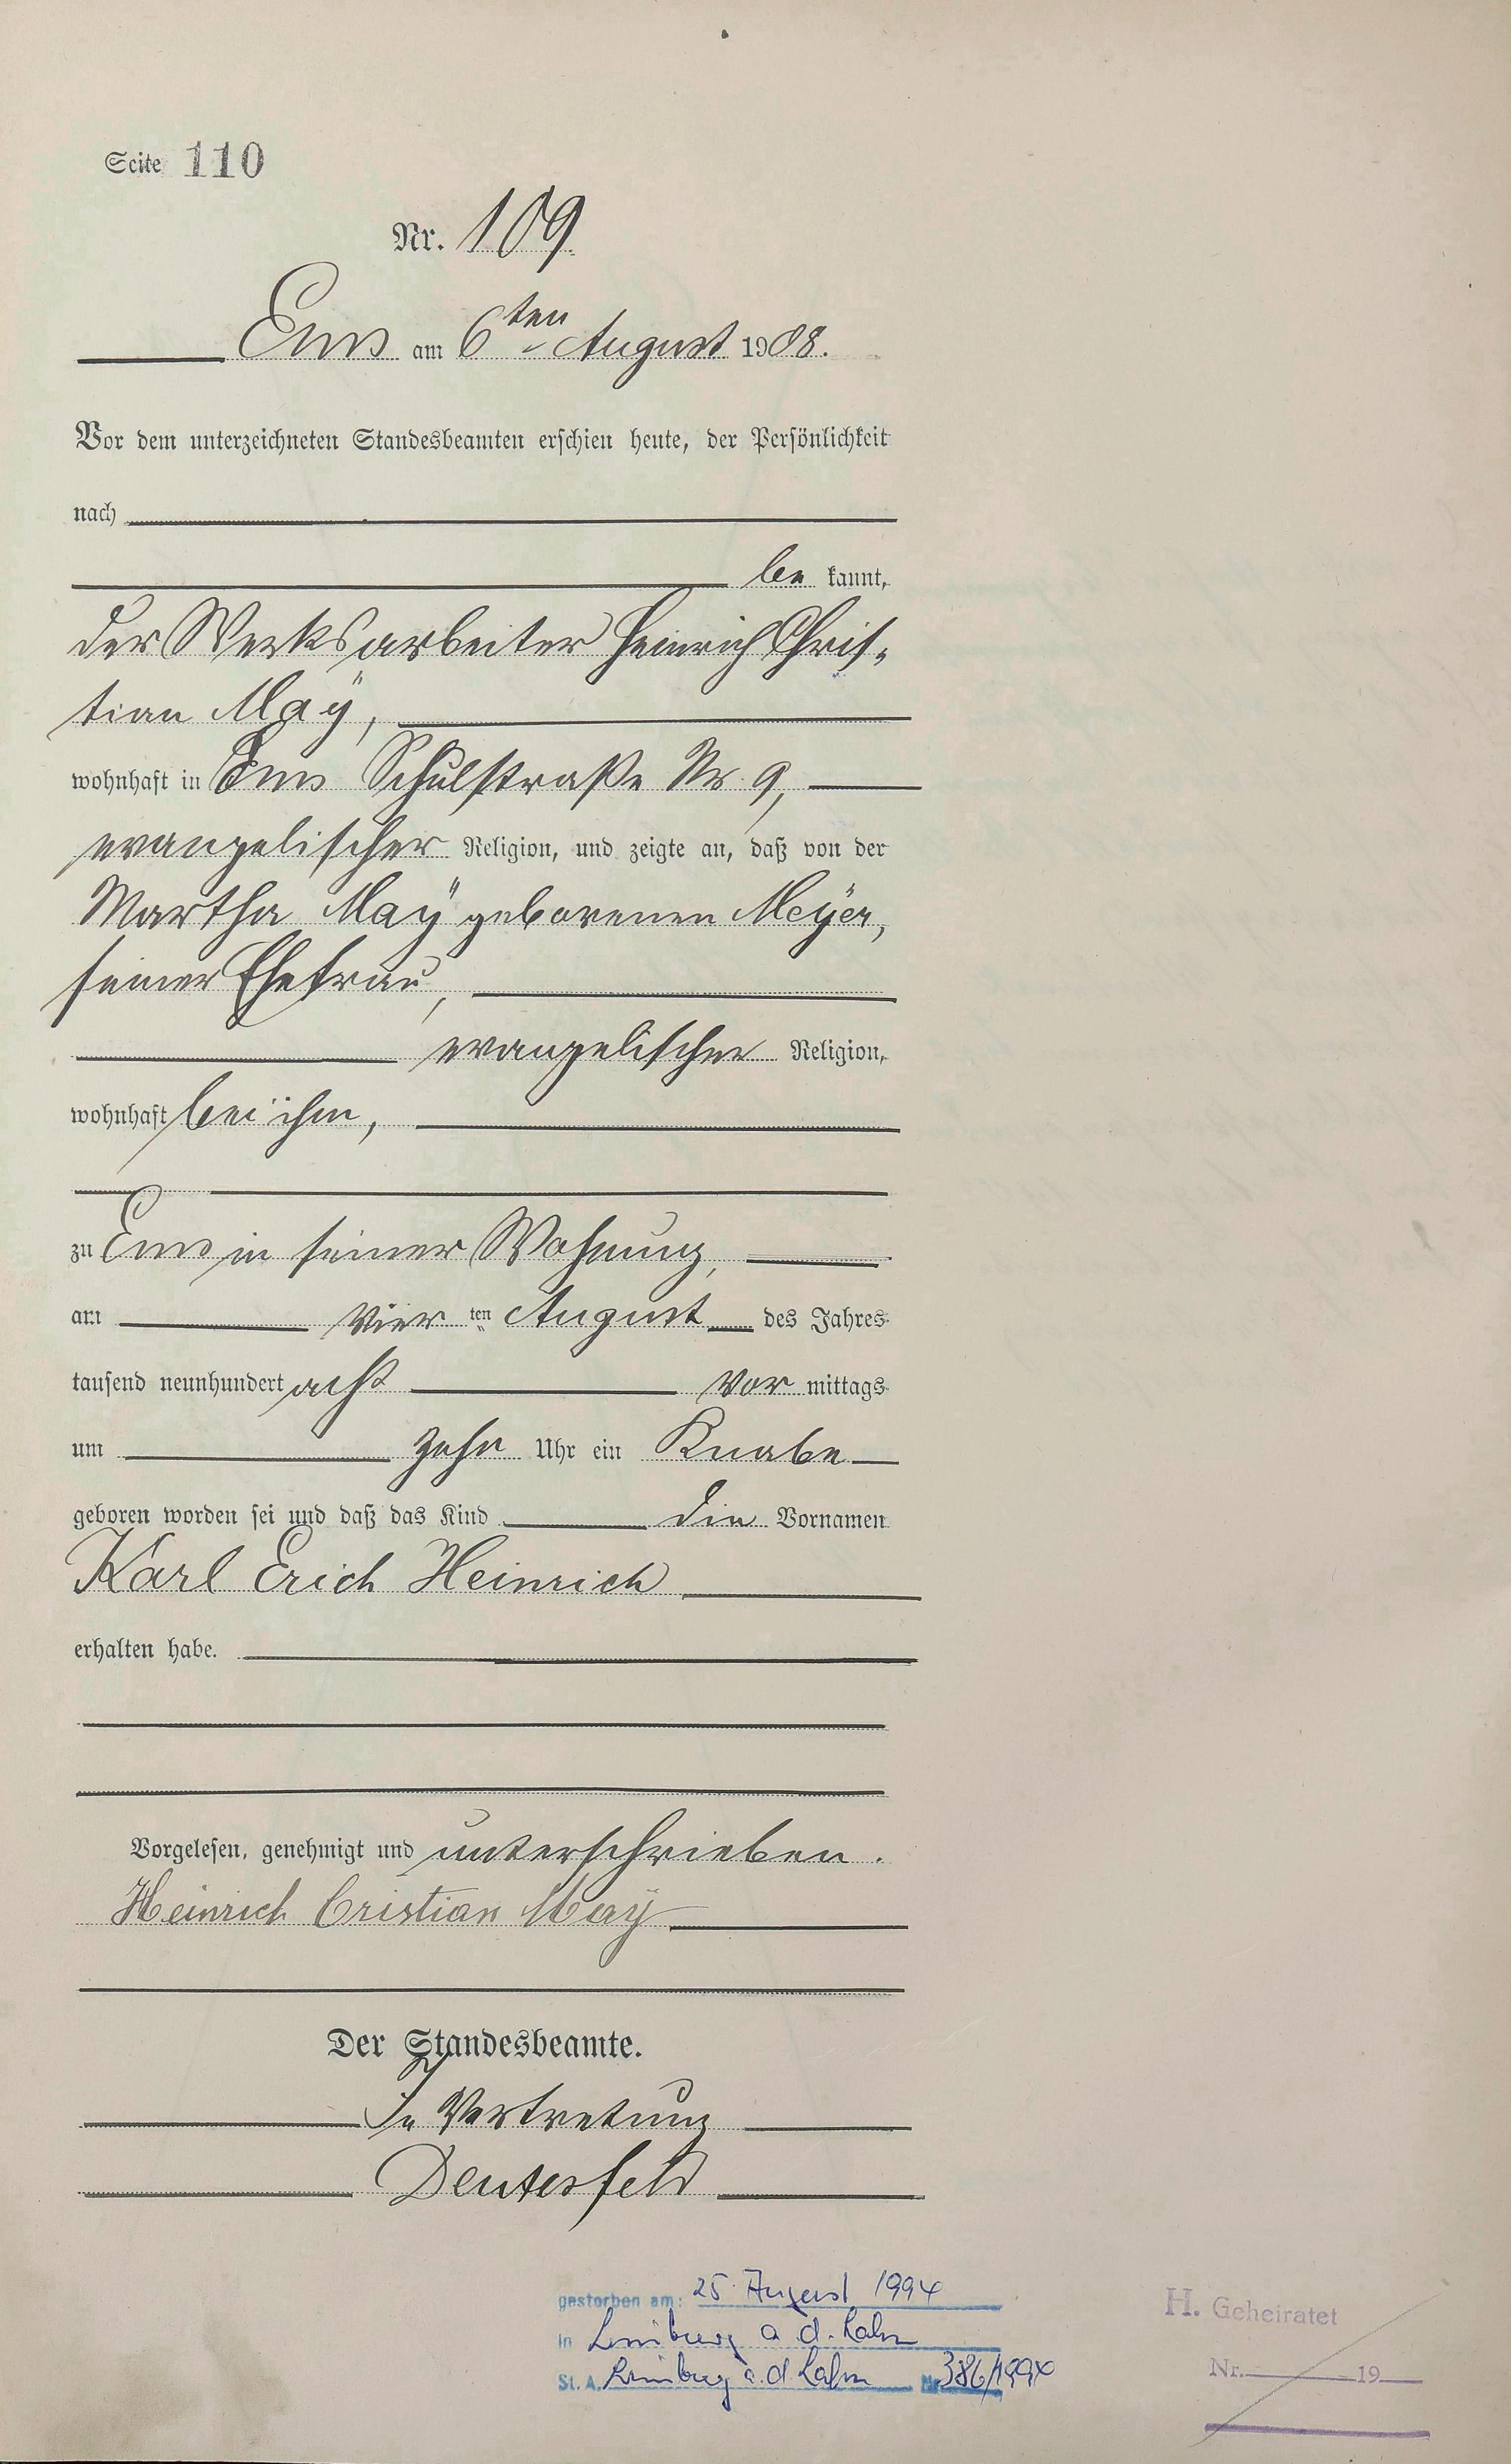 Seite 110
Nr. 109.
Ems am 6ten August 1908.
Vor dem unterzeichneten Standesbeamten erschien heute, der Persönlichkeit
nach
be kannt,
der Werksarbeiter Heinrich Chris-
tian Maÿ,
wohnhaft in Ems Schulstraße Nr. 9,
evangelischer Religion, und zeigte an, daß von der
Martha Maÿ geborenen Meÿer,
seiner Ehefrau,
evangelischer Religion,
wohnhaft bei ihm,
zu Ems in seiner Wohnung,
am vier ten August des Jahres
tausend neunhundert acht vor mittags
um zehn Uhr ein Knabe
geboren worden sei und daß das Kind die Vornamen
Karl Erich Heinrich
erhalten habe.
Vorgelesen, genehmigt und unterschrieben.
Heinrich Cristian Maÿ
Der Standesbeamte.
In Vertretung
Deutesfeld
gestorben am: 25. August 1994
in Limburg a. d. Lahn
St. A. Limburg a. d. Lahn Nr. 386/1994
H. Geheiratet
Nr. 19